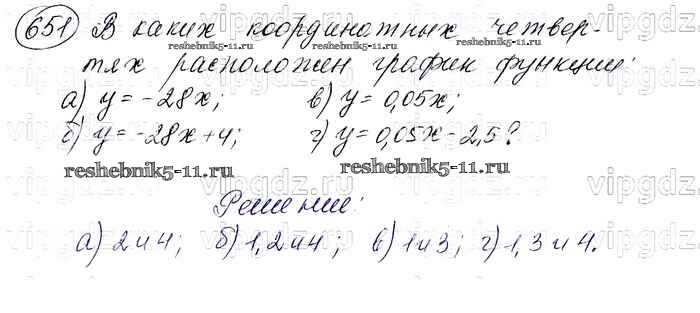 651 В каких координатных четвер-
reshebnik5-11.ru reshebnik5-11.ru
тях расположен график функции:
а) y = -28x; в) y = 0,05x;
б) y = -28x+4; г) y = 0,05x-2,5?
reshebnik5-11.ru reshebnik5-11.ru
Решение:
а) 2 и 4; б) 1, 2 и 4; в) 1 и 3; г) 1, 3 и 4.